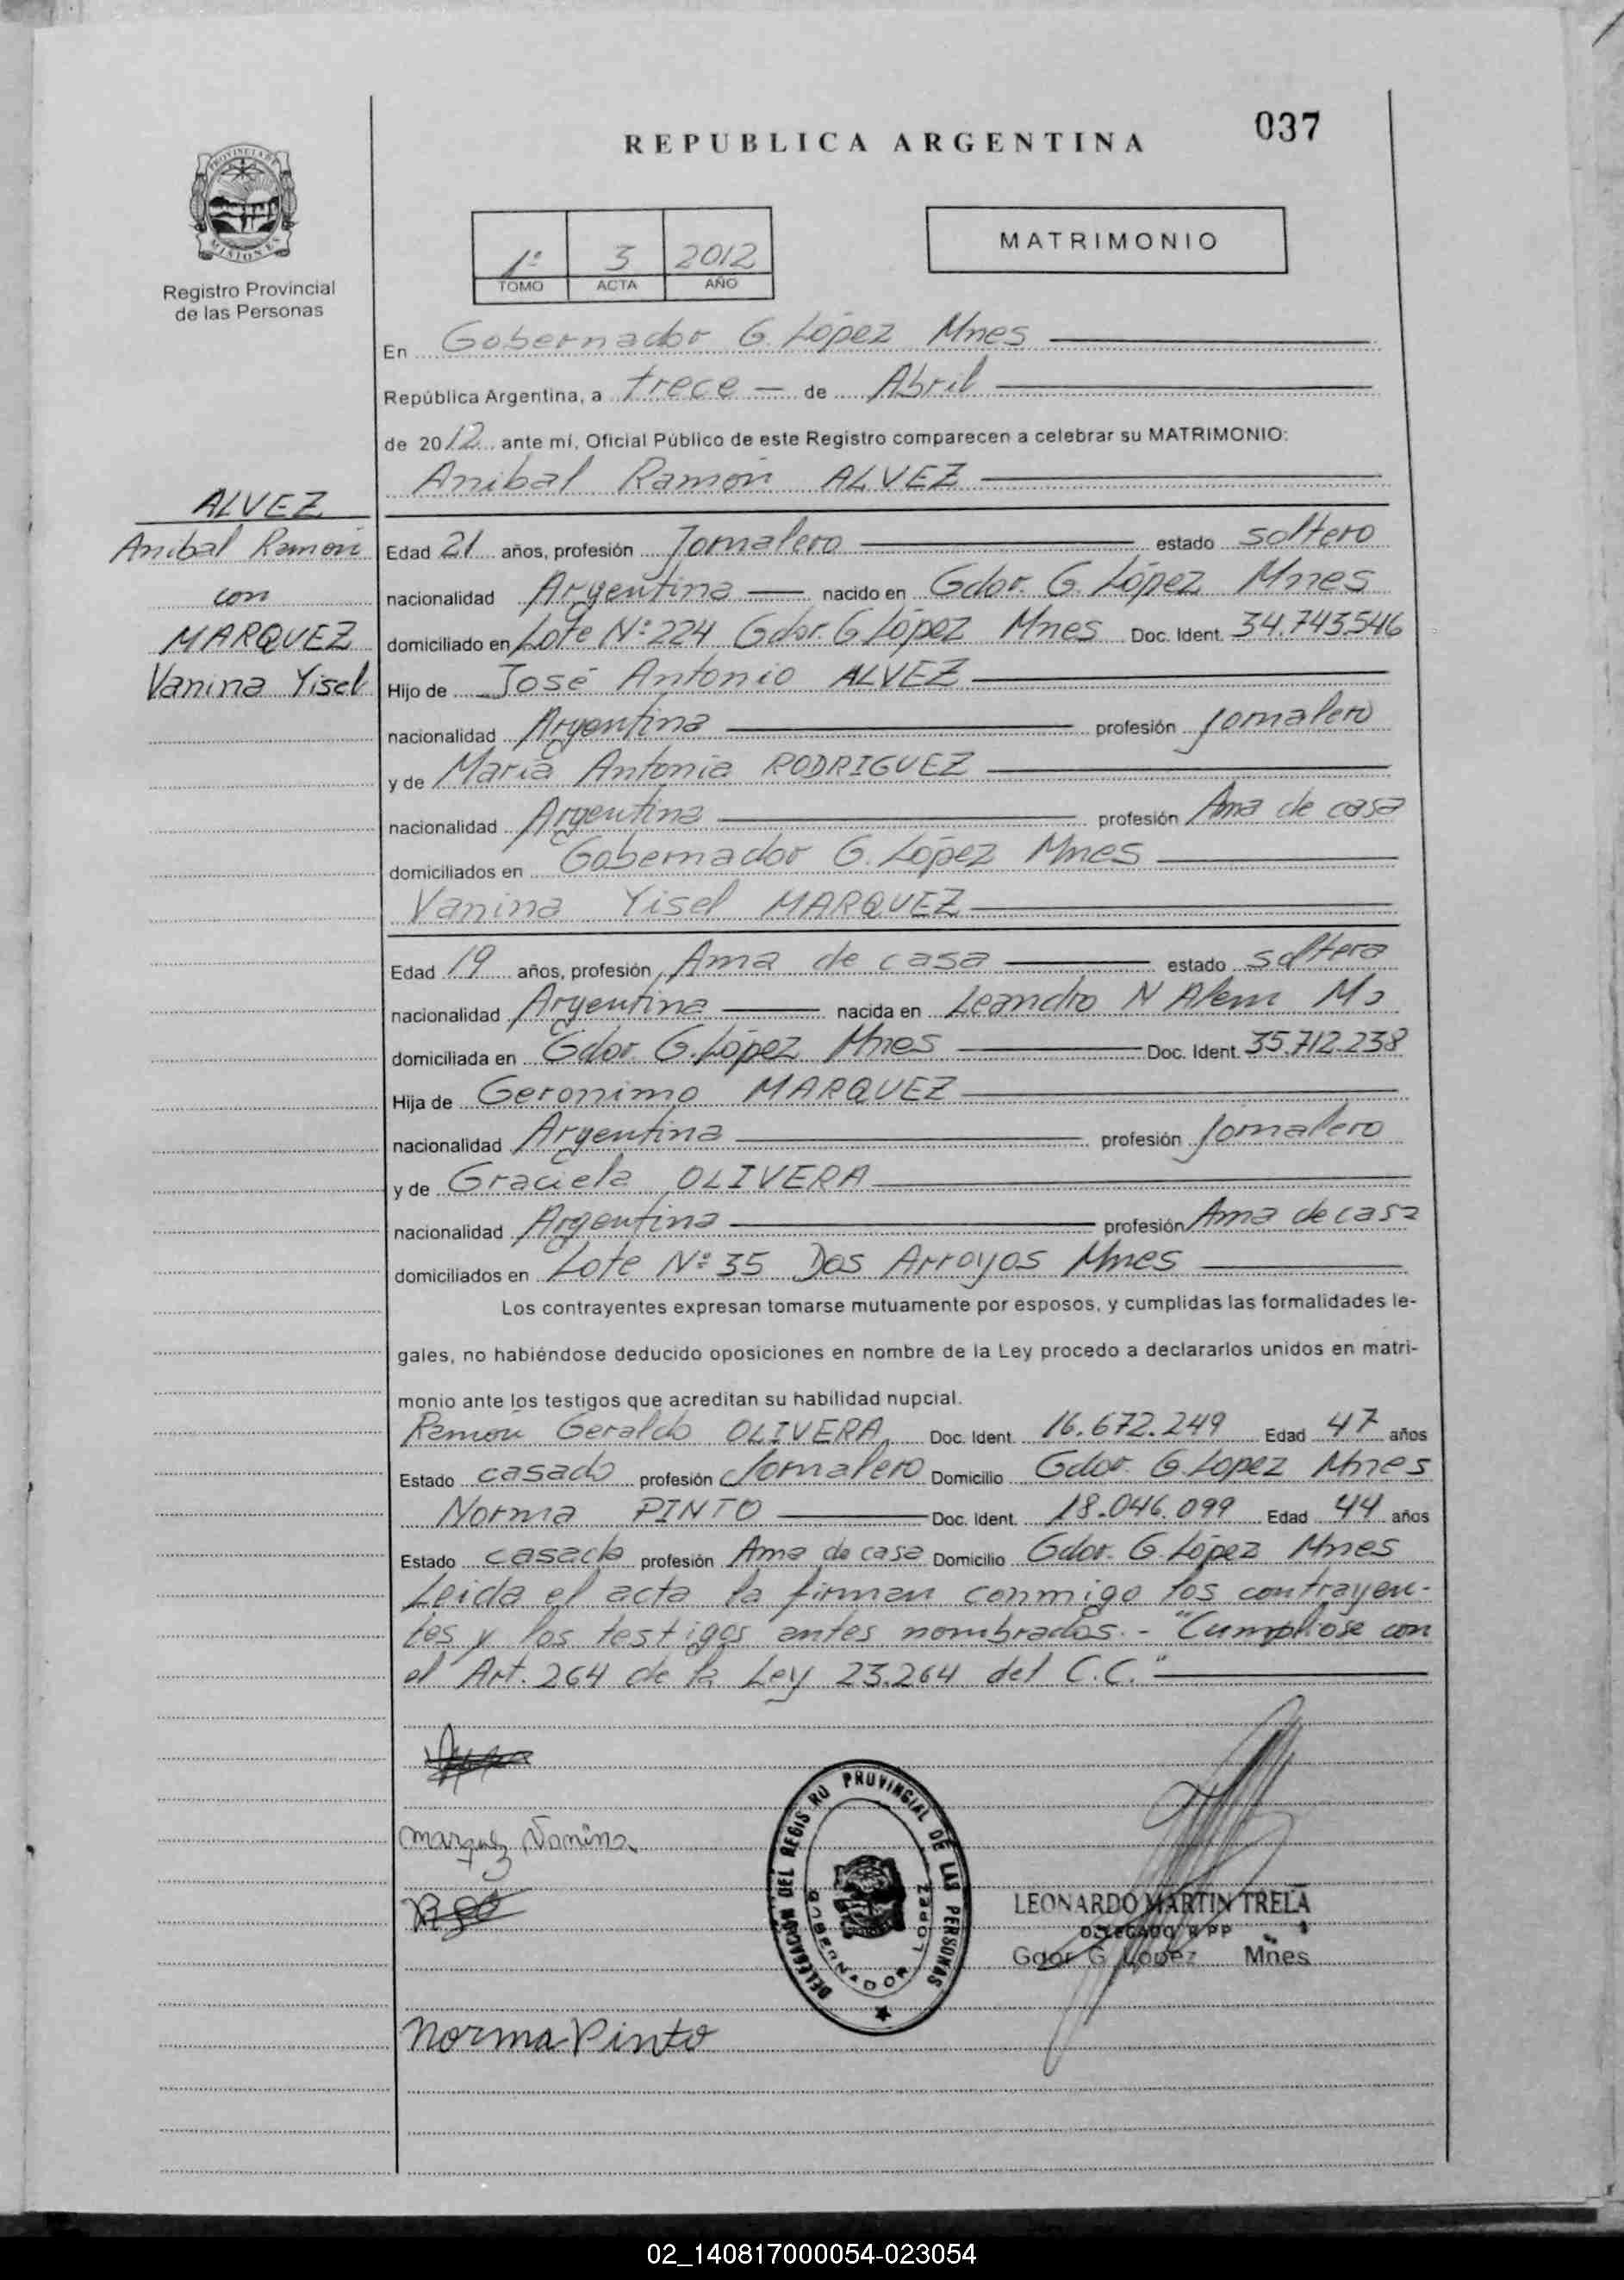 037
REPUBLICA ARGENTINA
PROVINCIA DE
MISIONES
Registro Provincial
de las Personas
1º 3 2012
TOMO ACTA AÑO
MATRIMONIO
En Gobernador G. López Mnes
República Argentina, a trece de Abril
de 2012 ante mí, Oficial Público de este Registro comparecen a celebrar su MATRIMONIO:
Anibal Ramón ALVEZ
ALVEZ
Anibal Ramón
con
MARQUEZ
Vanina Yisel
Edad 21 años, profesión Jornalero estado soltero
nacionalidad Argentina nacido en Gdor. G. López Mnes
domiciliado en Lote Nº 224 Gdor. G. López Mnes Doc. Ident. 34.743.546
Hijo de José Antonio ALVEZ
nacionalidad Argentina profesión Jornalero
y de María Antonia RODRIGUEZ
nacionalidad Argentina profesión Ama de casa
domiciliados en Gobernador G. López Mnes
Vanina Yisel MARQUEZ
Edad 19 años, profesión Ama de casa estado soltera
nacionalidad Argentina nacida en Leandro N Alem
domiciliada en Gdor G. López Mnes Doc. Ident. 35.712.238
Hija de Geronimo MARQUEZ
nacionalidad Argentina profesión Jornalero
y de Graciela OLIVERA
nacionalidad Argentina profesión Ama de casa
domiciliados en Lote Nº 35 Dos Arroyos Mnes
Los contrayentes expresan tomarse mutuamente por esposos, y cumplidas las formalidades le-
gales, no habiéndose deducido oposiciones en nombre de la Ley procedo a declararlos unidos en matri-
monio ante los testigos que acreditan su habilidad nupcial.
Ramón Geraldo OLIVERA Doc. Ident. 16.672.249 Edad 47 años
Estado casado profesión Jornalero Domicilio Gdor. G. Lopez Mnes
Norma PINTO Doc. Ident. 18.046.099 Edad 44 años
Estado casada profesión Ama de casa Domicilio Gdor. G. López Mnes
Leida el acta la firman conmigo los contrayen-
tes y los testigos antes nombrados.- "Cumpliose con
el Art. 264 de la Ley 23.264 del C.C."
Marquez Vanina
DELEGACION DEL REGISTRO PROVINCIAL DE LAS PERSONAS
GOBERNADOR LOPEZ
LEONARDO MARTIN TRELA
DELEGADO R PP
Gdor G López Mnes
Norma Pinto
02_140817000054-023054